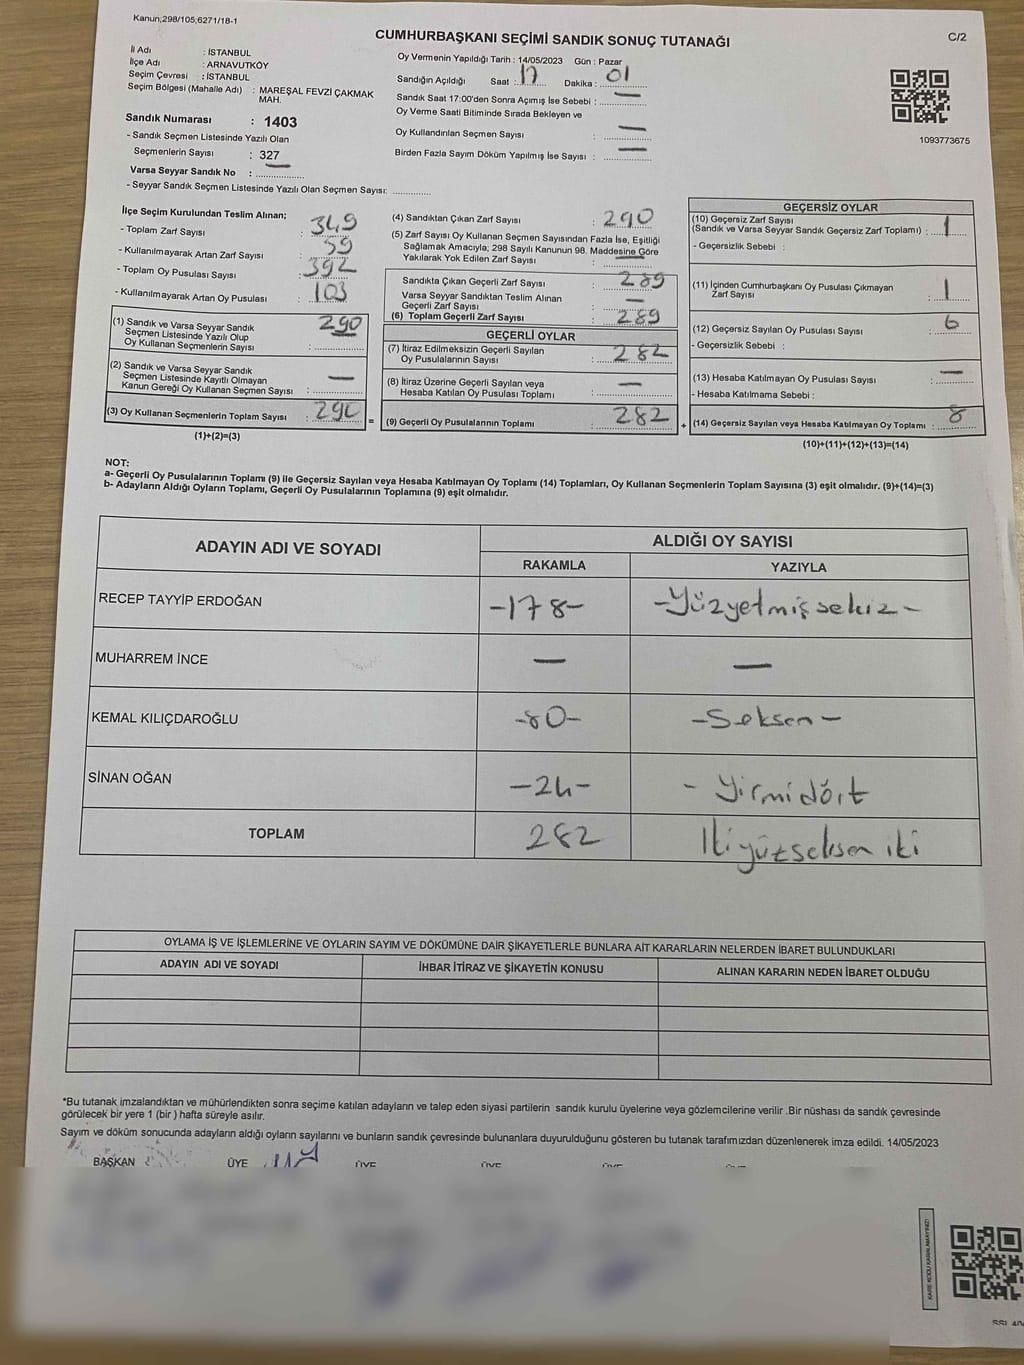 Kanun;298/105;6271/18-1
CUMHURBAŞKANI SEÇİMİ SANDIK SONUÇ TUTANAĞI
C/2
İl Adı : İSTANBUL
İlçe Adı : ARNAVUTKÖY
Seçim Çevresi : İSTANBUL
Seçim Bölgesi (Mahalle Adı) : MAREŞAL FEVZİ ÇAKMAK
MAH.
Sandık Numarası : 1403
- Sandık Seçmen Listesinde Yazılı Olan
Seçmenlerin Sayısı : 327
Varsa Seyyar Sandık No : —
- Seyyar Sandık Seçmen Listesinde Yazılı Olan Seçmen Sayısı: ..............
Oy Vermenin Yapıldığı Tarih : 14/05/2023 Gün : Pazar
Sandığın Açıldığı Saat : 17 Dakika : 01
Sandık Saat 17:00'den Sonra Açımış İse Sebebi : —
Oy Verme Saati Bitiminde Sırada Bekleyen ve
Oy Kullandırılan Seçmen Sayısı : —
Birden Fazla Sayım Döküm Yapılmış İse Sayısı : —
1093773675
İlçe Seçim Kurulundan Teslim Alınan;
- Toplam Zarf Sayısı : 349
- Kullanılmayarak Artan Zarf Sayısı : 59
- Toplam Oy Pusulası Sayısı : 392
- Kullanılmayarak Artan Oy Pusulası : 103
(1) Sandık ve Varsa Seyyar Sandık 290
Seçmen Listesinde Yazılı Olup
Oy Kullanan Seçmenlerin Sayısı : ..............
(2) Sandık ve Varsa Seyyar Sandık
Seçmen Listesinde Kayıtlı Olmayan —
Kanun Gereği Oy Kullanan Seçmen Sayısı : ..............
(3) Oy Kullanan Seçmenlerin Toplam Sayısı : 290
(1)+(2)=(3)
=
(4) Sandıktan Çıkan Zarf Sayısı : 290
(5) Zarf Sayısı Oy Kullanan Seçmen Sayısından Fazla İse, Eşitliği
Sağlamak Amacıyla; 298 Sayılı Kanunun 98. Maddesine Göre
Yakılarak Yok Edilen Zarf Sayısı : —
Sandıkta Çıkan Geçerli Zarf Sayısı : 289
Varsa Seyyar Sandıktan Teslim Alınan
Geçerli Zarf Sayısı : —
(6) Toplam Geçerli Zarf Sayısı : 289
GEÇERLİ OYLAR
(7) İtiraz Edilmeksizin Geçerli Sayılan
Oy Pusulalarının Sayısı : 282
(8) İtiraz Üzerine Geçerli Sayılan veya
Hesaba Katılan Oy Pusulası Toplamı : —
(9) Geçerli Oy Pusulalarının Toplamı : 282
+
GEÇERSİZ OYLAR
(10) Geçersiz Zarf Sayısı
(Sandık ve Varsa Seyyar Sandık Geçersiz Zarf Toplamı) : 1
- Geçersizlik Sebebi :
(11) İçinden Cumhurbaşkanı Oy Pusulası Çıkmayan
Zarf Sayısı : 1
(12) Geçersiz Sayılan Oy Pusulası Sayısı : 6
- Geçersizlik Sebebi :
(13) Hesaba Katılmayan Oy Pusulası Sayısı : —
- Hesaba Katılmama Sebebi :
(14) Geçersiz Sayılan veya Hesaba Katılmayan Oy Toplamı : 8
(10)+(11)+(12)+(13)=(14)
NOT:
a- Geçerli Oy Pusulalarının Toplamı (9) ile Geçersiz Sayılan veya Hesaba Katılmayan Oy Toplamı (14) Toplamları, Oy Kullanan Seçmenlerin Toplam Sayısına (3) eşit olmalıdır. (9)+(14)=(3)
b- Adayların Aldığı Oyların Toplamı, Geçerli Oy Pusulalarının Toplamına (9) eşit olmalıdır.
ADAYIN ADI VE SOYADI ALDIĞI OY SAYISI
RAKAMLA YAZIYLA
RECEP TAYYİP ERDOĞAN -178- -Yüzyetmişsekiz-
MUHARREM İNCE — —
KEMAL KILIÇDAROĞLU -80- -Seksen-
SİNAN OĞAN -24- - Yirmidört
TOPLAM 282 İkiyüzseksen iki
OYLAMA İŞ VE İŞLEMLERİNE VE OYLARIN SAYIM VE DÖKÜMÜNE DAİR ŞİKAYETLERLE BUNLARA AİT KARARLARIN NELERDEN İBARET BULUNDUKLARI
ADAYIN ADI VE SOYADI İHBAR İTİRAZ VE ŞİKAYETİN KONUSU ALINAN KARARIN NEDEN İBARET OLDUĞU
*Bu tutanak imzalandıktan ve mühürlendikten sonra seçime katılan adayların ve talep eden siyasi partilerin sandık kurulu üyelerine veya gözlemcilerine verilir .Bir nüshası da sandık çevresinde
görülecek bir yere 1 (bir ) hafta süreyle asılır.
Sayım ve döküm sonucunda adayların aldığı oyların sayılarını ve bunların sandık çevresinde bulunanlara duyurulduğunu gösteren bu tutanak tarafımızdan düzenlenerek imza edildi. 14/05/2023
BAŞKAN ÜYE ÜYE ÜYE ÜYE
KARE KODU KARALAMAYINIZ!